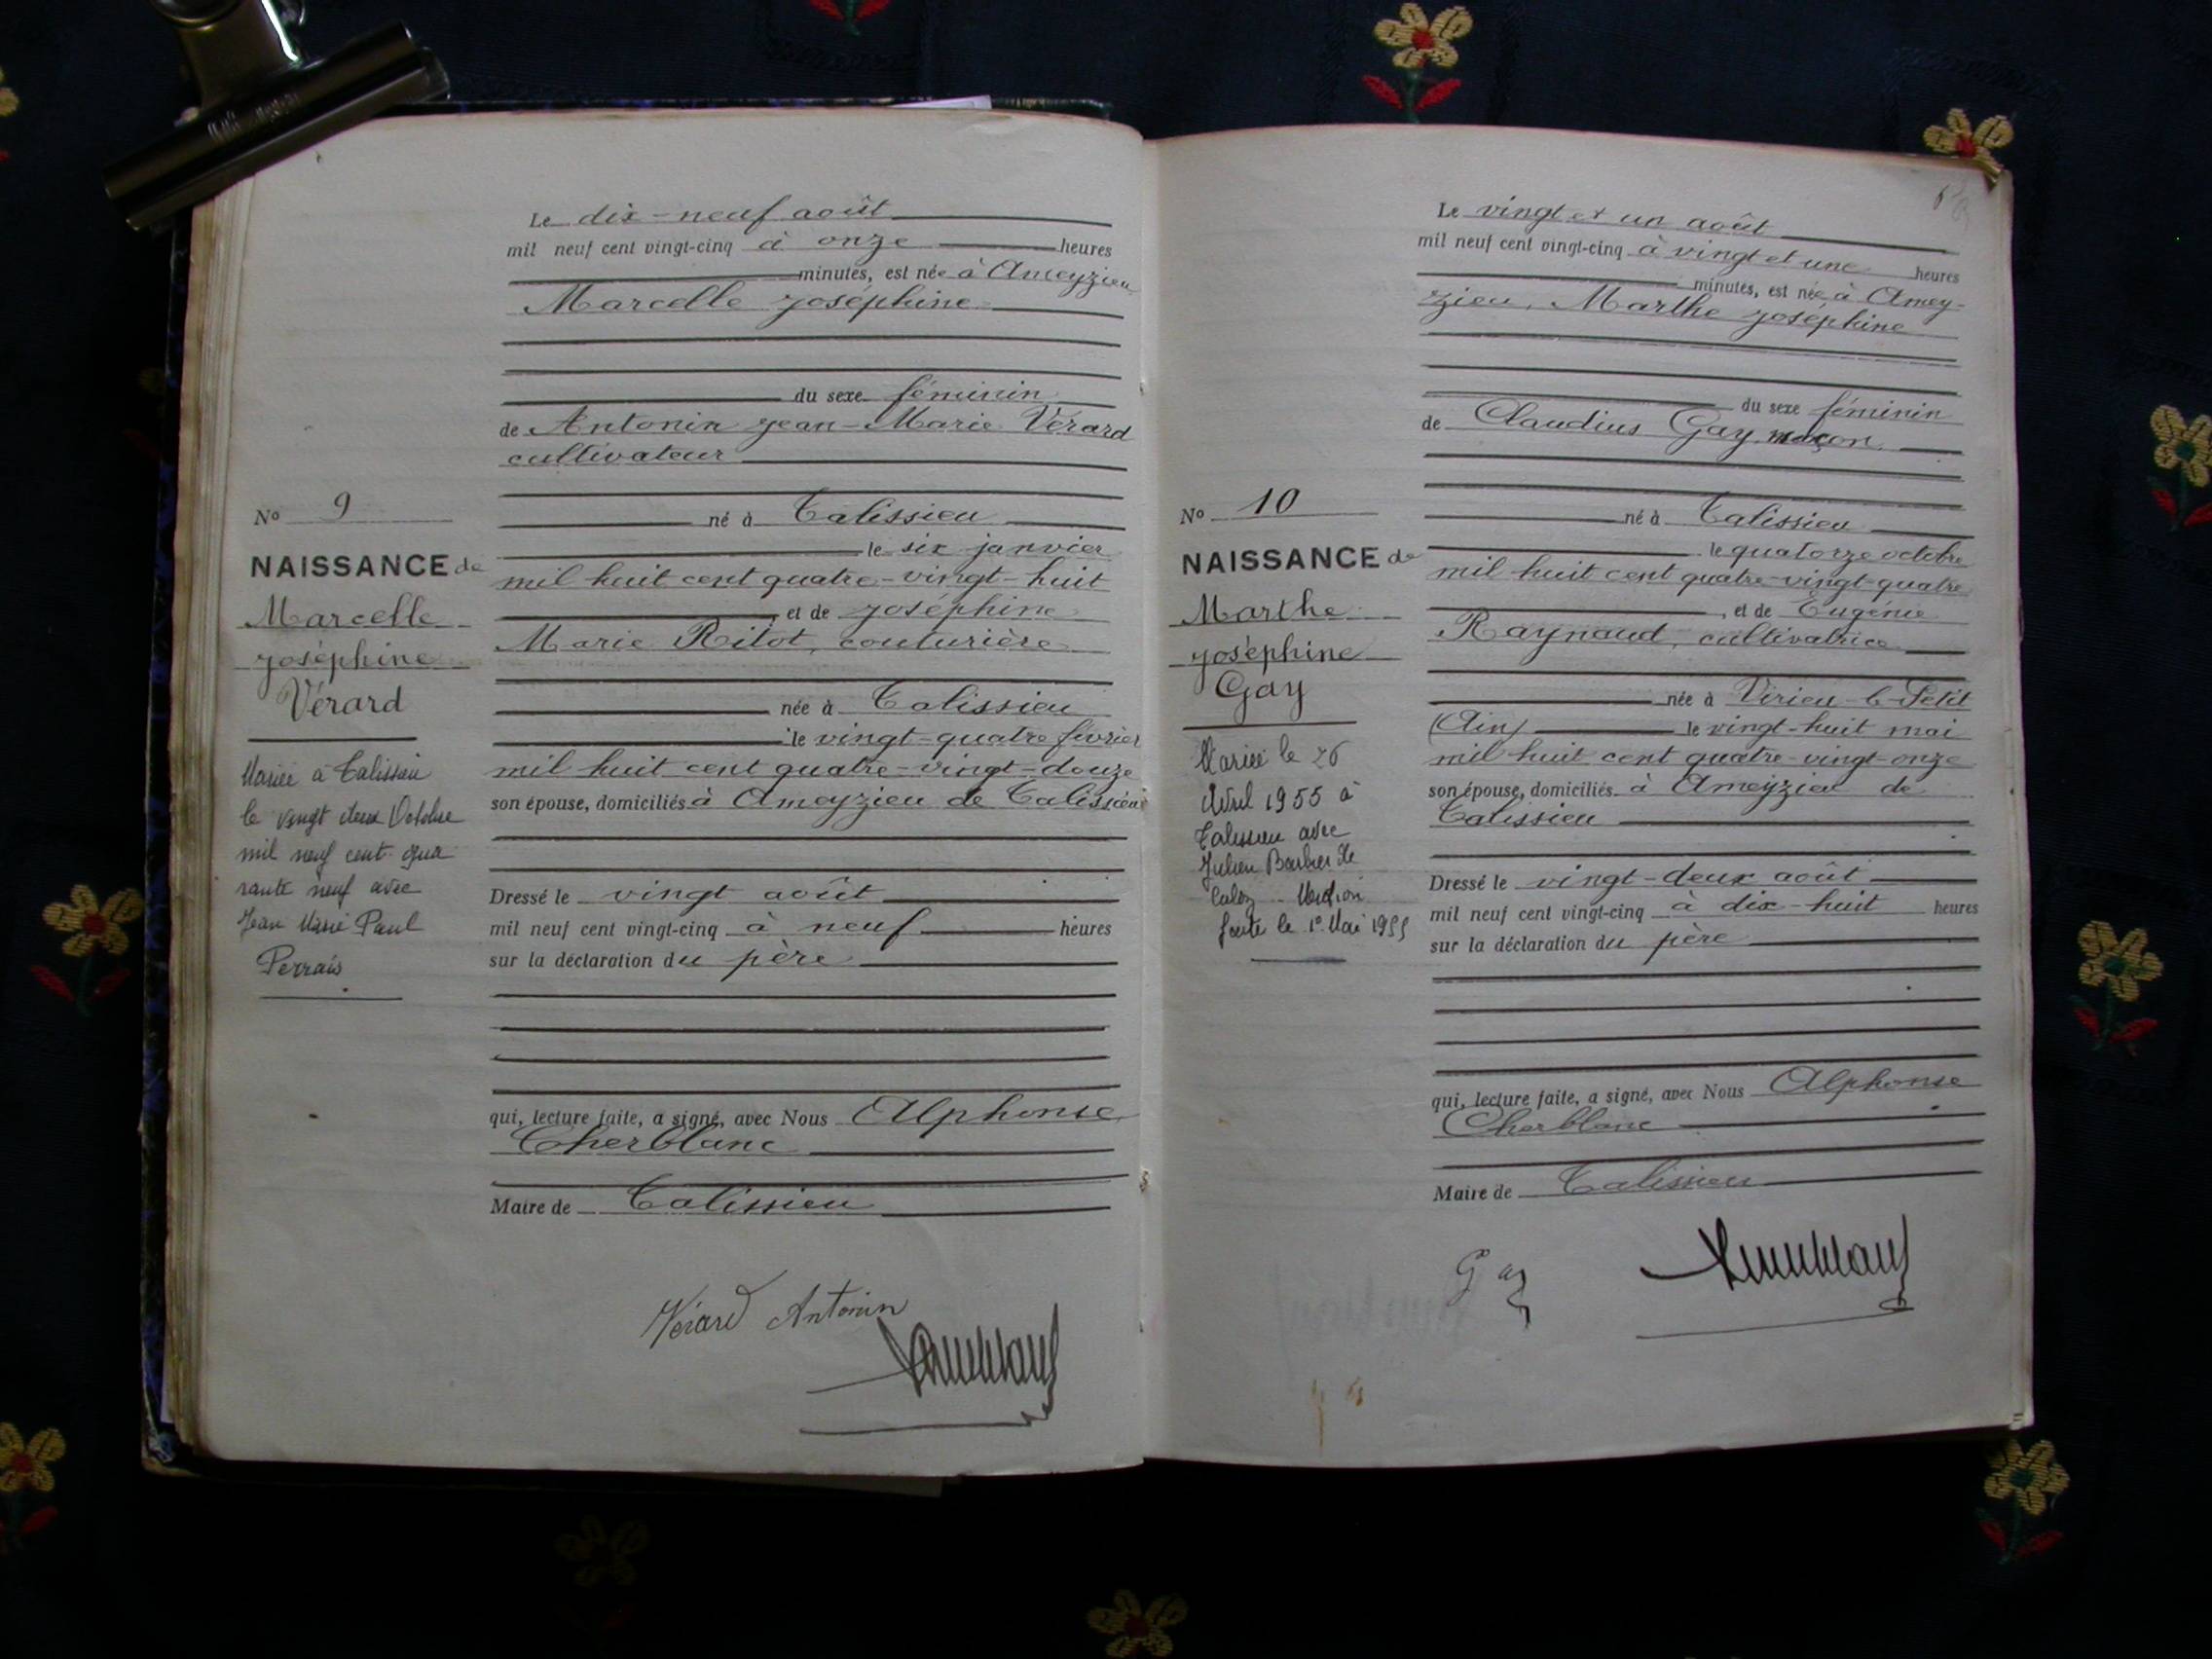 Le dix-neuf août
mil neuf cent vingt-cinq à onze heures
minutes, est née à Ameyzieu
Marcelle Joséphine
du sexe féminin
de Antonin Jean-Marie Vérard
cultivateur
né à Talissieu
le six janvier
mil huit cent quatre-vingt-huit
et de Joséphine
Marie Ritot, couturière
née à Talissieu
le vingt-quatre février
mil huit cent quatre-vingt-douze
son épouse, domiciliés à Ameyzieu de Talissieu
Dressé le vingt août
mil neuf cent vingt-cinq à neuf heures
sur la déclaration du père
qui, lecture faite, a signé, avec Nous Alphonse
Cherblanc
Maire de Talissieu
Vérard Antonin
No 9
NAISSANCE de
Marcelle
Joséphine
Vérard
Mariée à Talissieu
le vingt deux Octobre
mil neuf cent qua
rante neuf avec
Jean Marie Paul
Perrais
Le vingt et un août
mil neuf cent vingt-cinq à vingt et une heures
minutes, est née à Amey-
zieu, Marthe Joséphine
du sexe féminin
de Claudius Gay, maçon
né à Talissieu
le quatorze octobre
mil huit cent quatre-vingt-quatre
, et de Eugénie
Raynaud, cultivatrice
née à Virieu-le-Petit
(Ain) le vingt-huit mai
mil huit cent quatre-vingt-onze
son épouse, domiciliés à Ameyzieu de
Talissieu
Dressé le vingt-deux août
mil neuf cent vingt-cinq à dix-huit heures
sur la déclaration du père
qui, lecture faite, a signé, avec Nous Alphonse
Cherblanc
Maire de Talissieu
Gay
No 10
NAISSANCE de
Marthe
Joséphine
Gay
Mariée le 26
Avril 1955 à
Talissieu avec
Julien Barbier de
Culoz Mention
faite le 1° Mai 1955